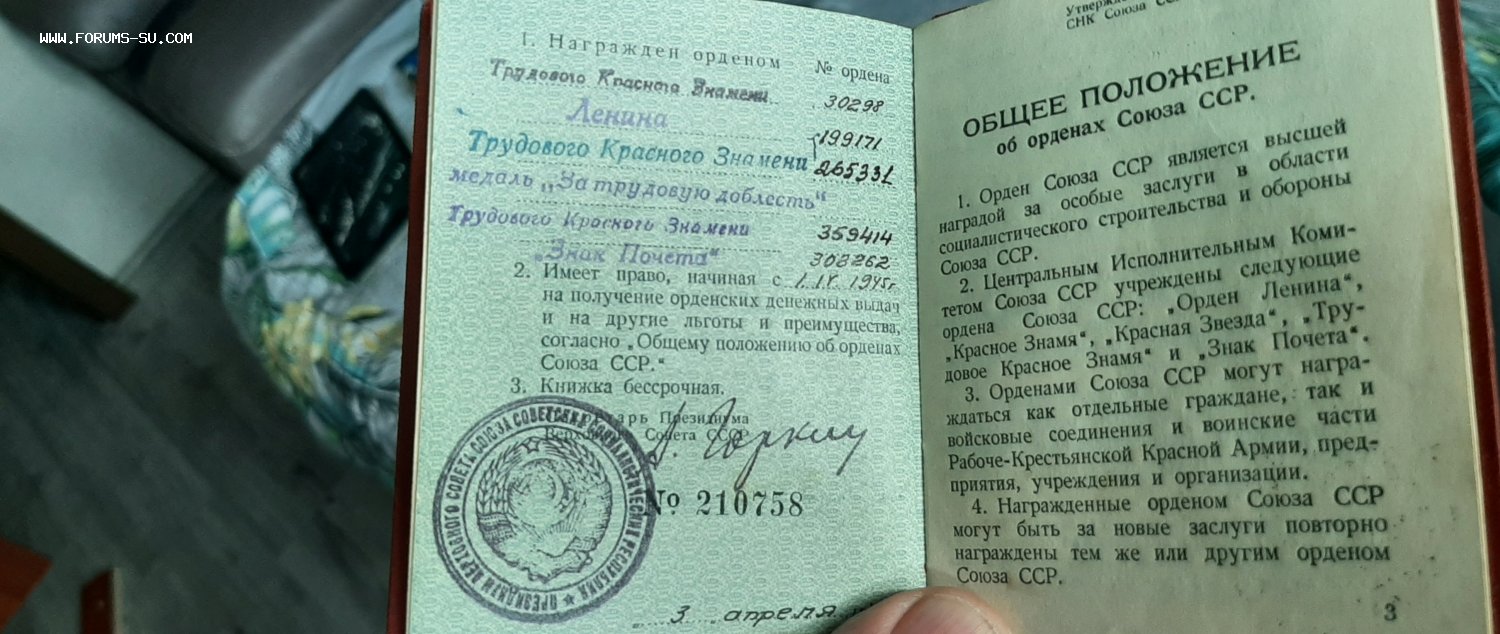 WWW.FORUMS-SU.COM
1. Награжден орденом № ордена
Трудового Красного Знамени 30298
Ленина 199171
Трудового Красного Знамени 265331
медаль „За трудовую доблесть“
Трудового Красного Знамени 359414
„Знак Почета“ 308262
2. Имеет право, начиная с 1.IV.1945г.
на получение орденских денежных выдач
и на другие льготы и преимущества,
согласно „Общему положению об орденах
Союза ССР.“
3. Книжка бессрочная.
Президиума
Совета ССР
А. Горкин
№ 210758
ПРЕЗИДИУМ ВЕРХОВНОГО СОВЕТА СОЮЗА СОВЕТСКИХ СОЦИАЛИСТИЧЕСКИХ РЕСПУБЛИК
3 апреля
СНК Союза
ОБЩЕЕ ПОЛОЖЕНИЕ
об орденах Союза ССР.
1. Орден Союза ССР является высшей
наградой за особые заслуги в области
социалистического строительства и обороны
Союза ССР.
2. Центральным Исполнительным Коми-
тетом Союза ССР учреждены следующие
ордена Союза ССР: „Орден Ленина“,
„Красное Знамя“, „Красная Звезда“, „Тру-
довое Красное Знамя“ и „Знак Почета“.
3. Орденами Союза ССР могут награ-
ждаться как отдельные граждане, так и
войсковые соединения и воинские части
Рабоче-Крестьянской Красной Армии, пред-
приятия, учреждения и организации.
4. Награжденные орденом Союза ССР
могут быть за новые заслуги повторно
награждены тем же или другим орденом
Союза ССР.
3